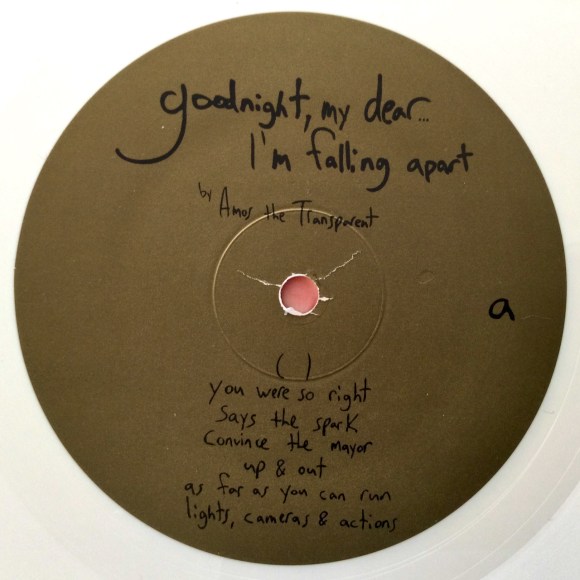 goodnight, my dear...
I'm falling apart
by Amos the Transparent
a
( )
you were so right
Says the spark
Convince the mayor
up & out
as far as you can run
lights, cameras & actions